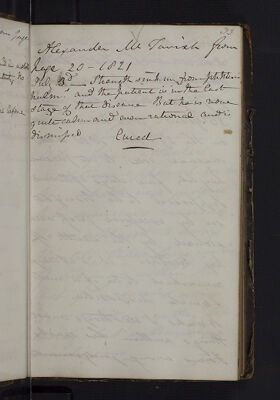 93
Alexander Mc Tavish from
Page 20 - 1821
July 3d Strength sunk in from phthisis
pulms and the patient is in the last
stage of that disease But he is now
quite calm and even rational and is
dismissed Cured